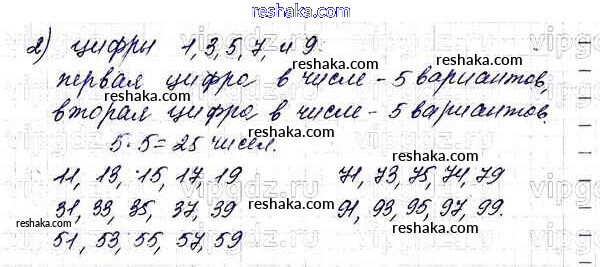 reshaka.com
2) цифры 1, 3, 5, 7, и 9.
первая цифра в числе - 5 вариантов,
вторая цифра в числе - 5 вариантов.
5 · 5 = 25 чисел.
11, 13, 15, 17, 19
71, 73, 75, 77, 79
31, 33, 35, 37, 39
91, 93, 95, 97, 99.
51, 53, 55, 57, 59
reshaka.com
reshaka.com
reshaka.com
reshaka.com
reshaka.com
reshaka.com
reshaka.com
reshaka.com
vipgdz.ru